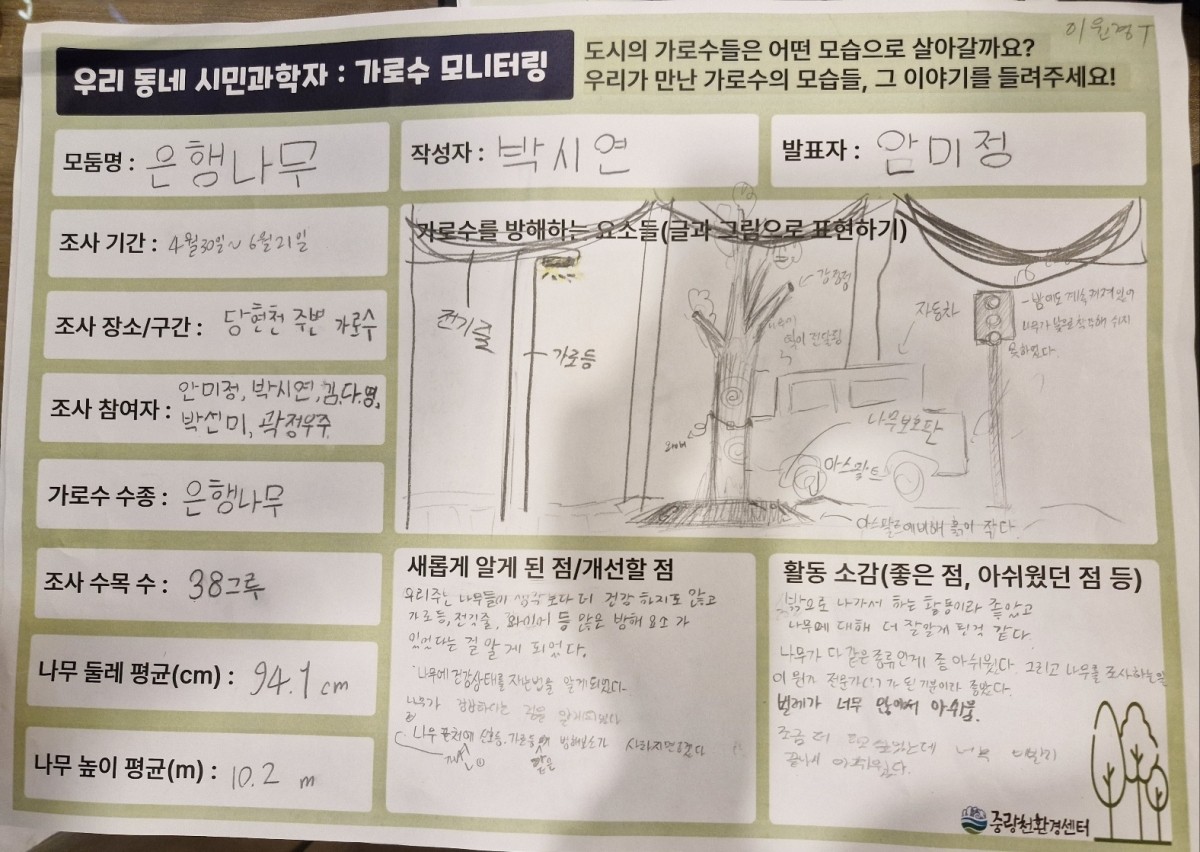 이원경T
우리 동네 시민과학자 : 가로수 모니터링
도시의 가로수들은 어떤 모습으로 살아갈까요?
우리가 만난 가로수의 모습들, 그 이야기를 들려주세요!
모둠명 : 은행나무
작성자 : 박시연
발표자 : 안미정
조사 기간 : 4월30일~6월21일
조사 장소/구간 : 당현천 주변 가로수
조사 참여자 : 안미정, 박시연, 김다영,
박선미, 곽정우주
가로수 수종 : 은행나무
조사 수목 수 : 38그루
나무 둘레 평균(cm) : 94.1 cm
나무 높이 평균(m) : 10.2 m
가로수를 방해하는 요소들(글과 그림으로 표현하기)
전기줄
가로등
강전정
자동차
- 밤에도 계속 켜져있어
나무가 쉬지
못하였다.
나무보호판
아스팔트
아스팔트에 비해 흙이 작다.
새롭게 알게 된 점/개선할 점
우리주변 나무들이 생각보다 더 건강 하지도 않고
가로등, 전깃줄, 와이어 등 많은 방해 요소가
있었다는 걸 알게 되었다.
나무에 건강상태를 알게되었다.
나무가
나무 근처에 신호등, 가로등 방해요소가 사라지면좋겠다
많은
활동 소감(좋은 점, 아쉬웠던 점 등)
밖으로 나가서 하는 활동이라 좋았고
나무에 대해 더 잘알게 된것 같다.
나무가 다 같은종류인게 좀 아쉬웠다. 그리고 나무를 조사하는일
이 뭔지 전문가(?)가 된 기분이라 좋았다.
벌레가 너무 많아서 아쉬움.
조금 더 하고 싶었는데 너무 빨리
끝나서 아쉬웠다.
중랑천환경센터